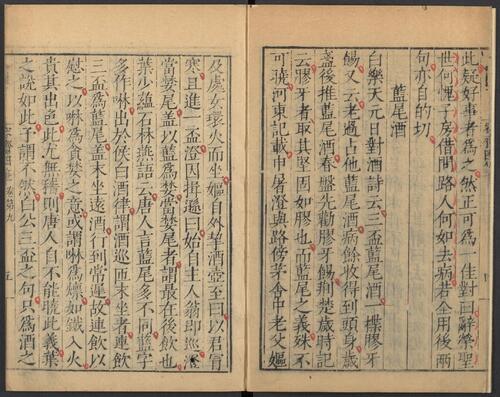 此疑好事者爲之然正可爲一佳對曰辭榮聖
世何愧子房借問路人何如去病若全用後兩
句亦自的切
藍尾酒
白樂天元日對酒詩云三盃藍尾酒一楪膠牙
餳又云老過占他藍尾酒病餘收得到頭身歲
盞後推藍尾酒春盤先勸膠牙餳荆楚歲時記
云膠牙者取其堅固如膠也而藍尾之義殊不
可曉河東記載申屠澄與路傍茅舍中老父嫗
及處女環火而坐嫗自外挈酒壺至曰以君冒
寒且進一盃澄因揖遜曰始自主人翁即巡澄
當婪尾蓋以藍爲婪當婪尾者謂最在後飲也
葉少蘊石林燕語云唐人言藍尾多不同藍字
多作啉出於侯白酒律謂酒巡匝末坐者連飲
三盃爲藍尾盖末坐遠酒行到常遲故連飲以
慰之以啉爲貪婪之意或謂啉爲燷如鐵入火
貴其出色此尤無稽則唐人自不能曉此義葉
之說如此予謂不然白公三盃之句只爲酒之
容齋四筆卷第九
五